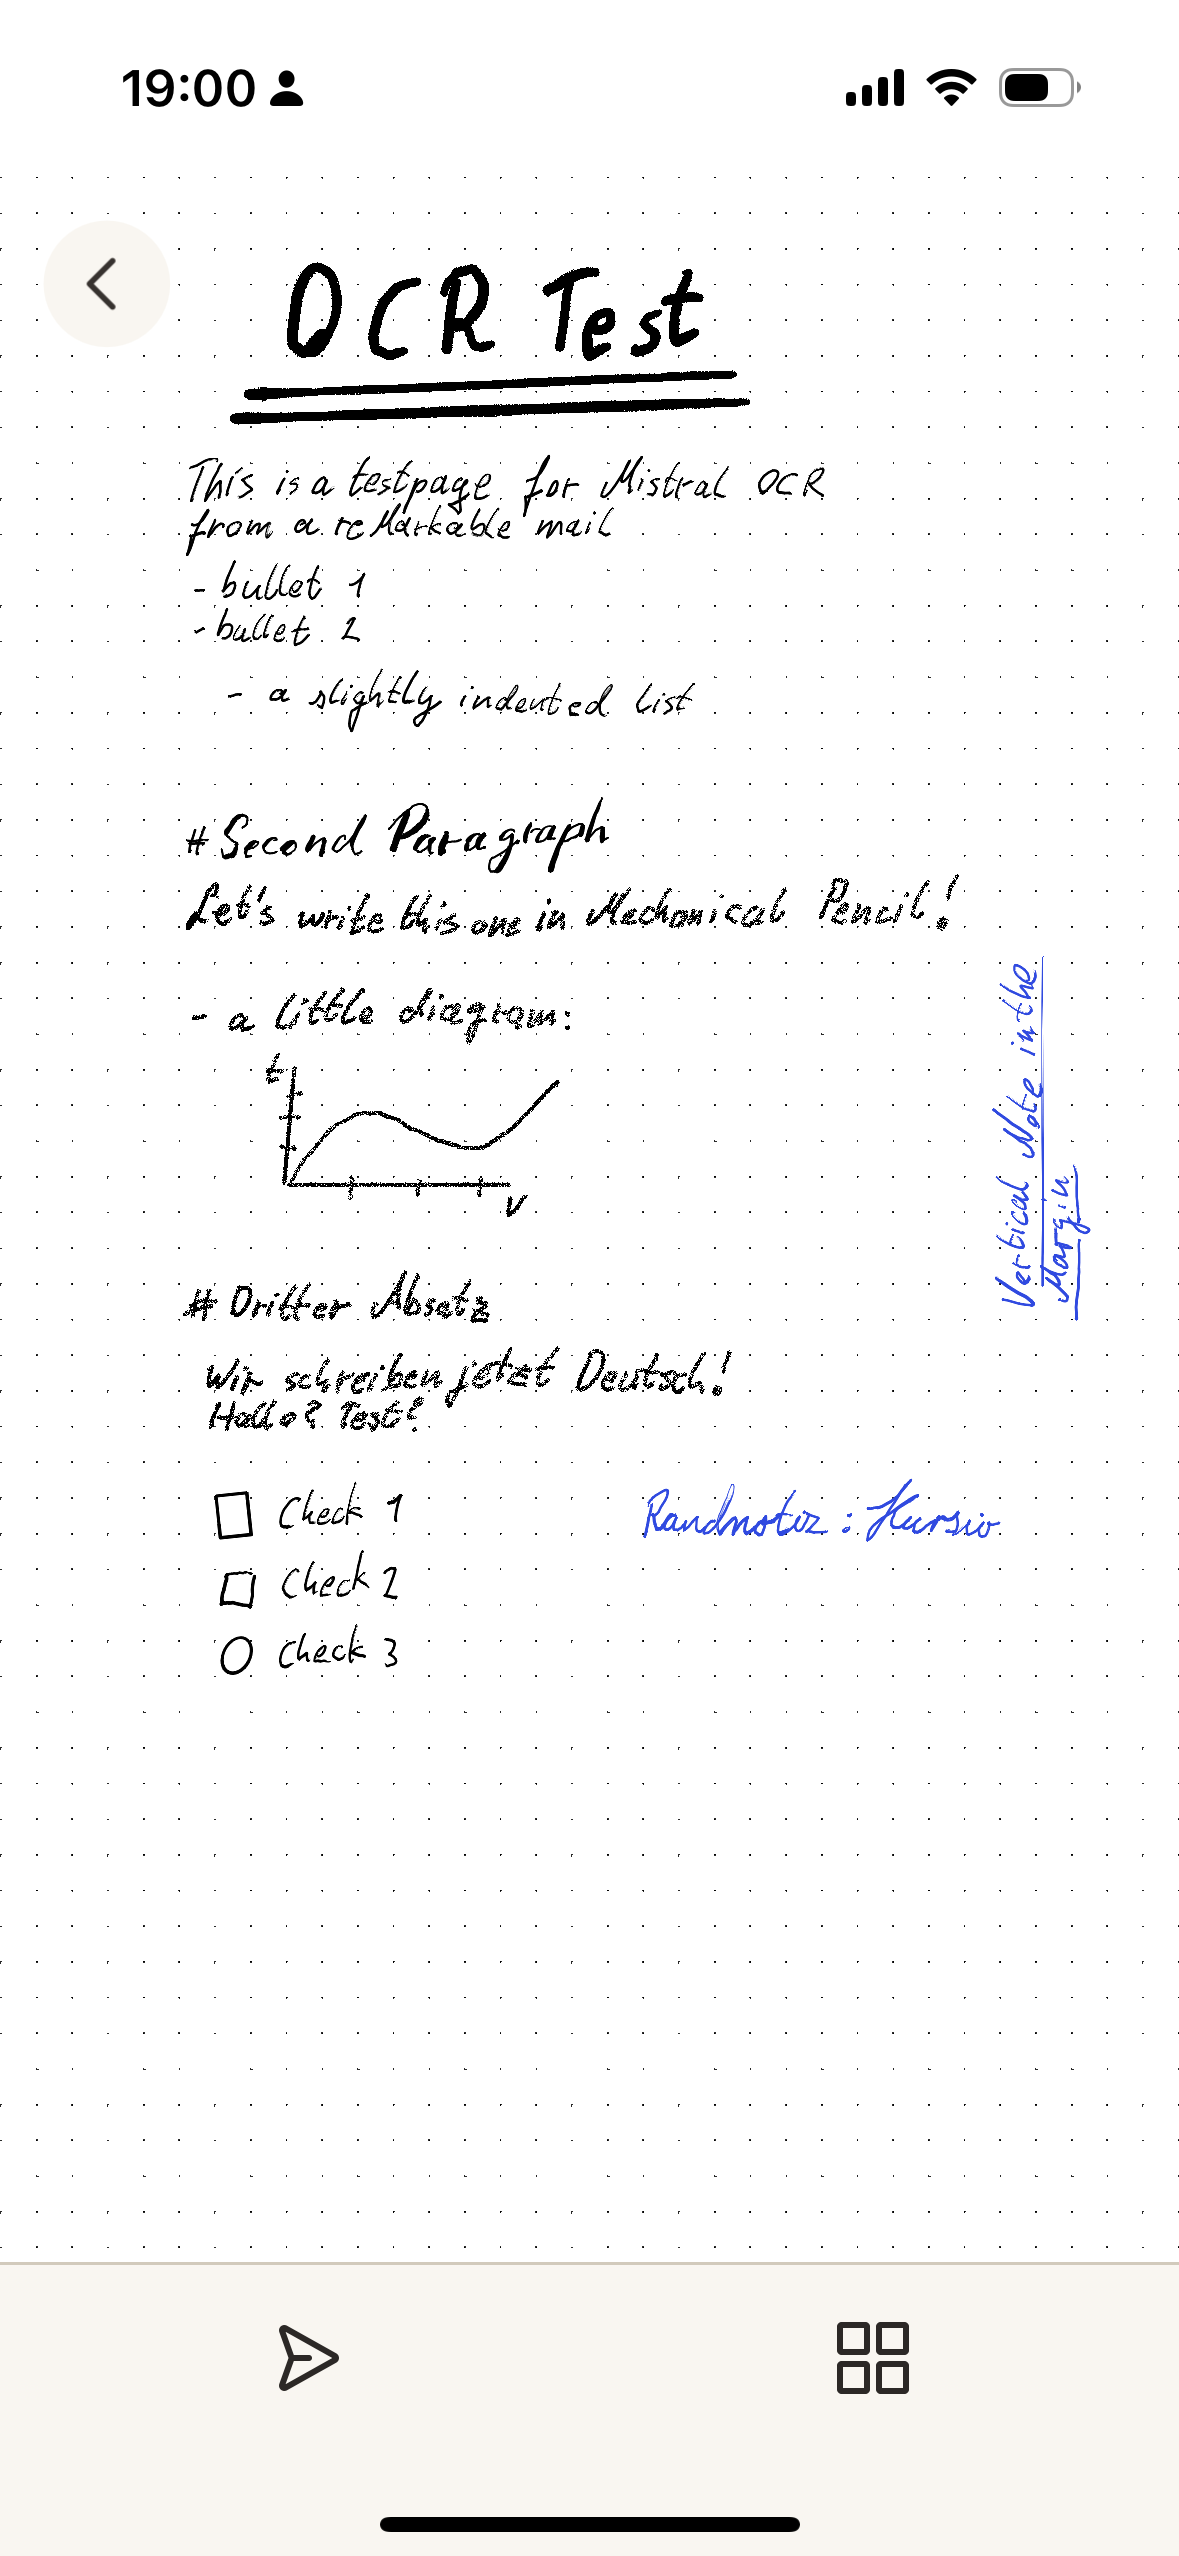 19:00
OCR Test
This is a testpage for Mistral OCR
from a reMarkable mail
- bullet 1
- bullet 2
- a slightly indented list
# Second Paragraph
Let's write this one in Mechanical Pencil!
- a little diagram:
t
v
Vertical Note in the
Margin
# Dritter Absatz
Wir schreiben jetzt Deutsch!
Hallo? Test?
Check 1
Randnotiz: Kursiv
Check 2
Check 3